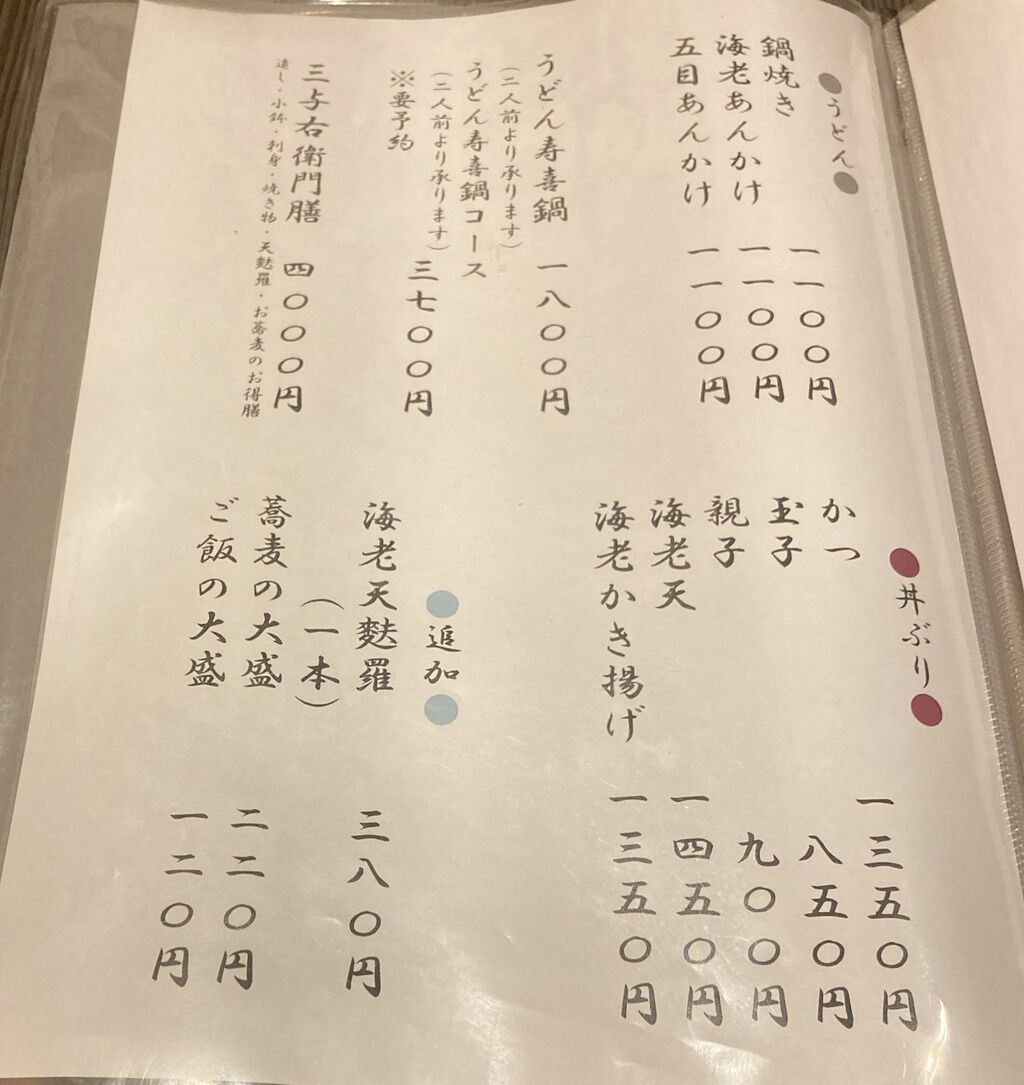 うどん
鍋焼き 一一〇〇円
海老あんかけ 一一〇〇円
五目あんかけ 一一〇〇円
うどん寿喜鍋 一八〇〇円
（二人前より承ります）
うどん寿喜鍋コース
（二人前より承ります） 三七〇〇円
※要予約
三与右衛門膳 四〇〇〇円
達し・小鉢・刺身・焼き物・天麩羅・お蕎麦のお得膳
丼ぶり
かつ 一三五〇円
玉子 八五〇円
親子 九〇〇円
海老天 一四五〇円
海老かき揚げ 一三五〇円
追加
海老天麩羅
（一本） 三八〇円
蕎麦の大盛 二二〇円
ご飯の大盛 一二〇円